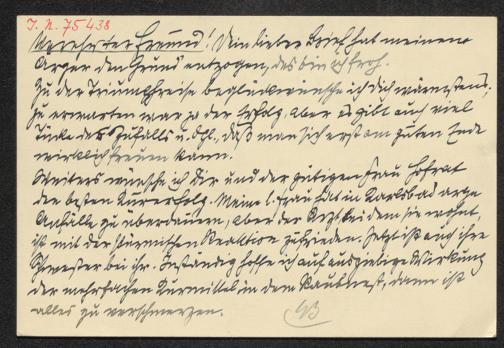 I. N. 75438
Verehrter Freund! Dein lieber Brief hat meinem
Ärger den Grund entzogen, des bin ich froh.
Zu der Triumphreise beglückwünsche ich Dich wärmstens;
zu erwarten war ja der Erfolg, aber es gibt auch viel
Tücke des Zufalls u. dgl., daß man sich erst am guten Ende
wirklich freuen kann.
Weiters wünsche ich Dir und der gütigen Frau Hofrat
den besten Kurerfolg. Meine l. Frau hat in Karlsbad arge
Anfälle zu überdauern, aber der Arzt, bei dem sie wohnt,
ist mit der stürmischen Reaktion zufrieden. Jetzt ist auch ihre
Schwester bei ihr. Inständig hoffe ich auf ausgiebige Wirkung
der mehrfachen Kurmittel in dem Raubnest, dann ist
alles zu verschmerzen.